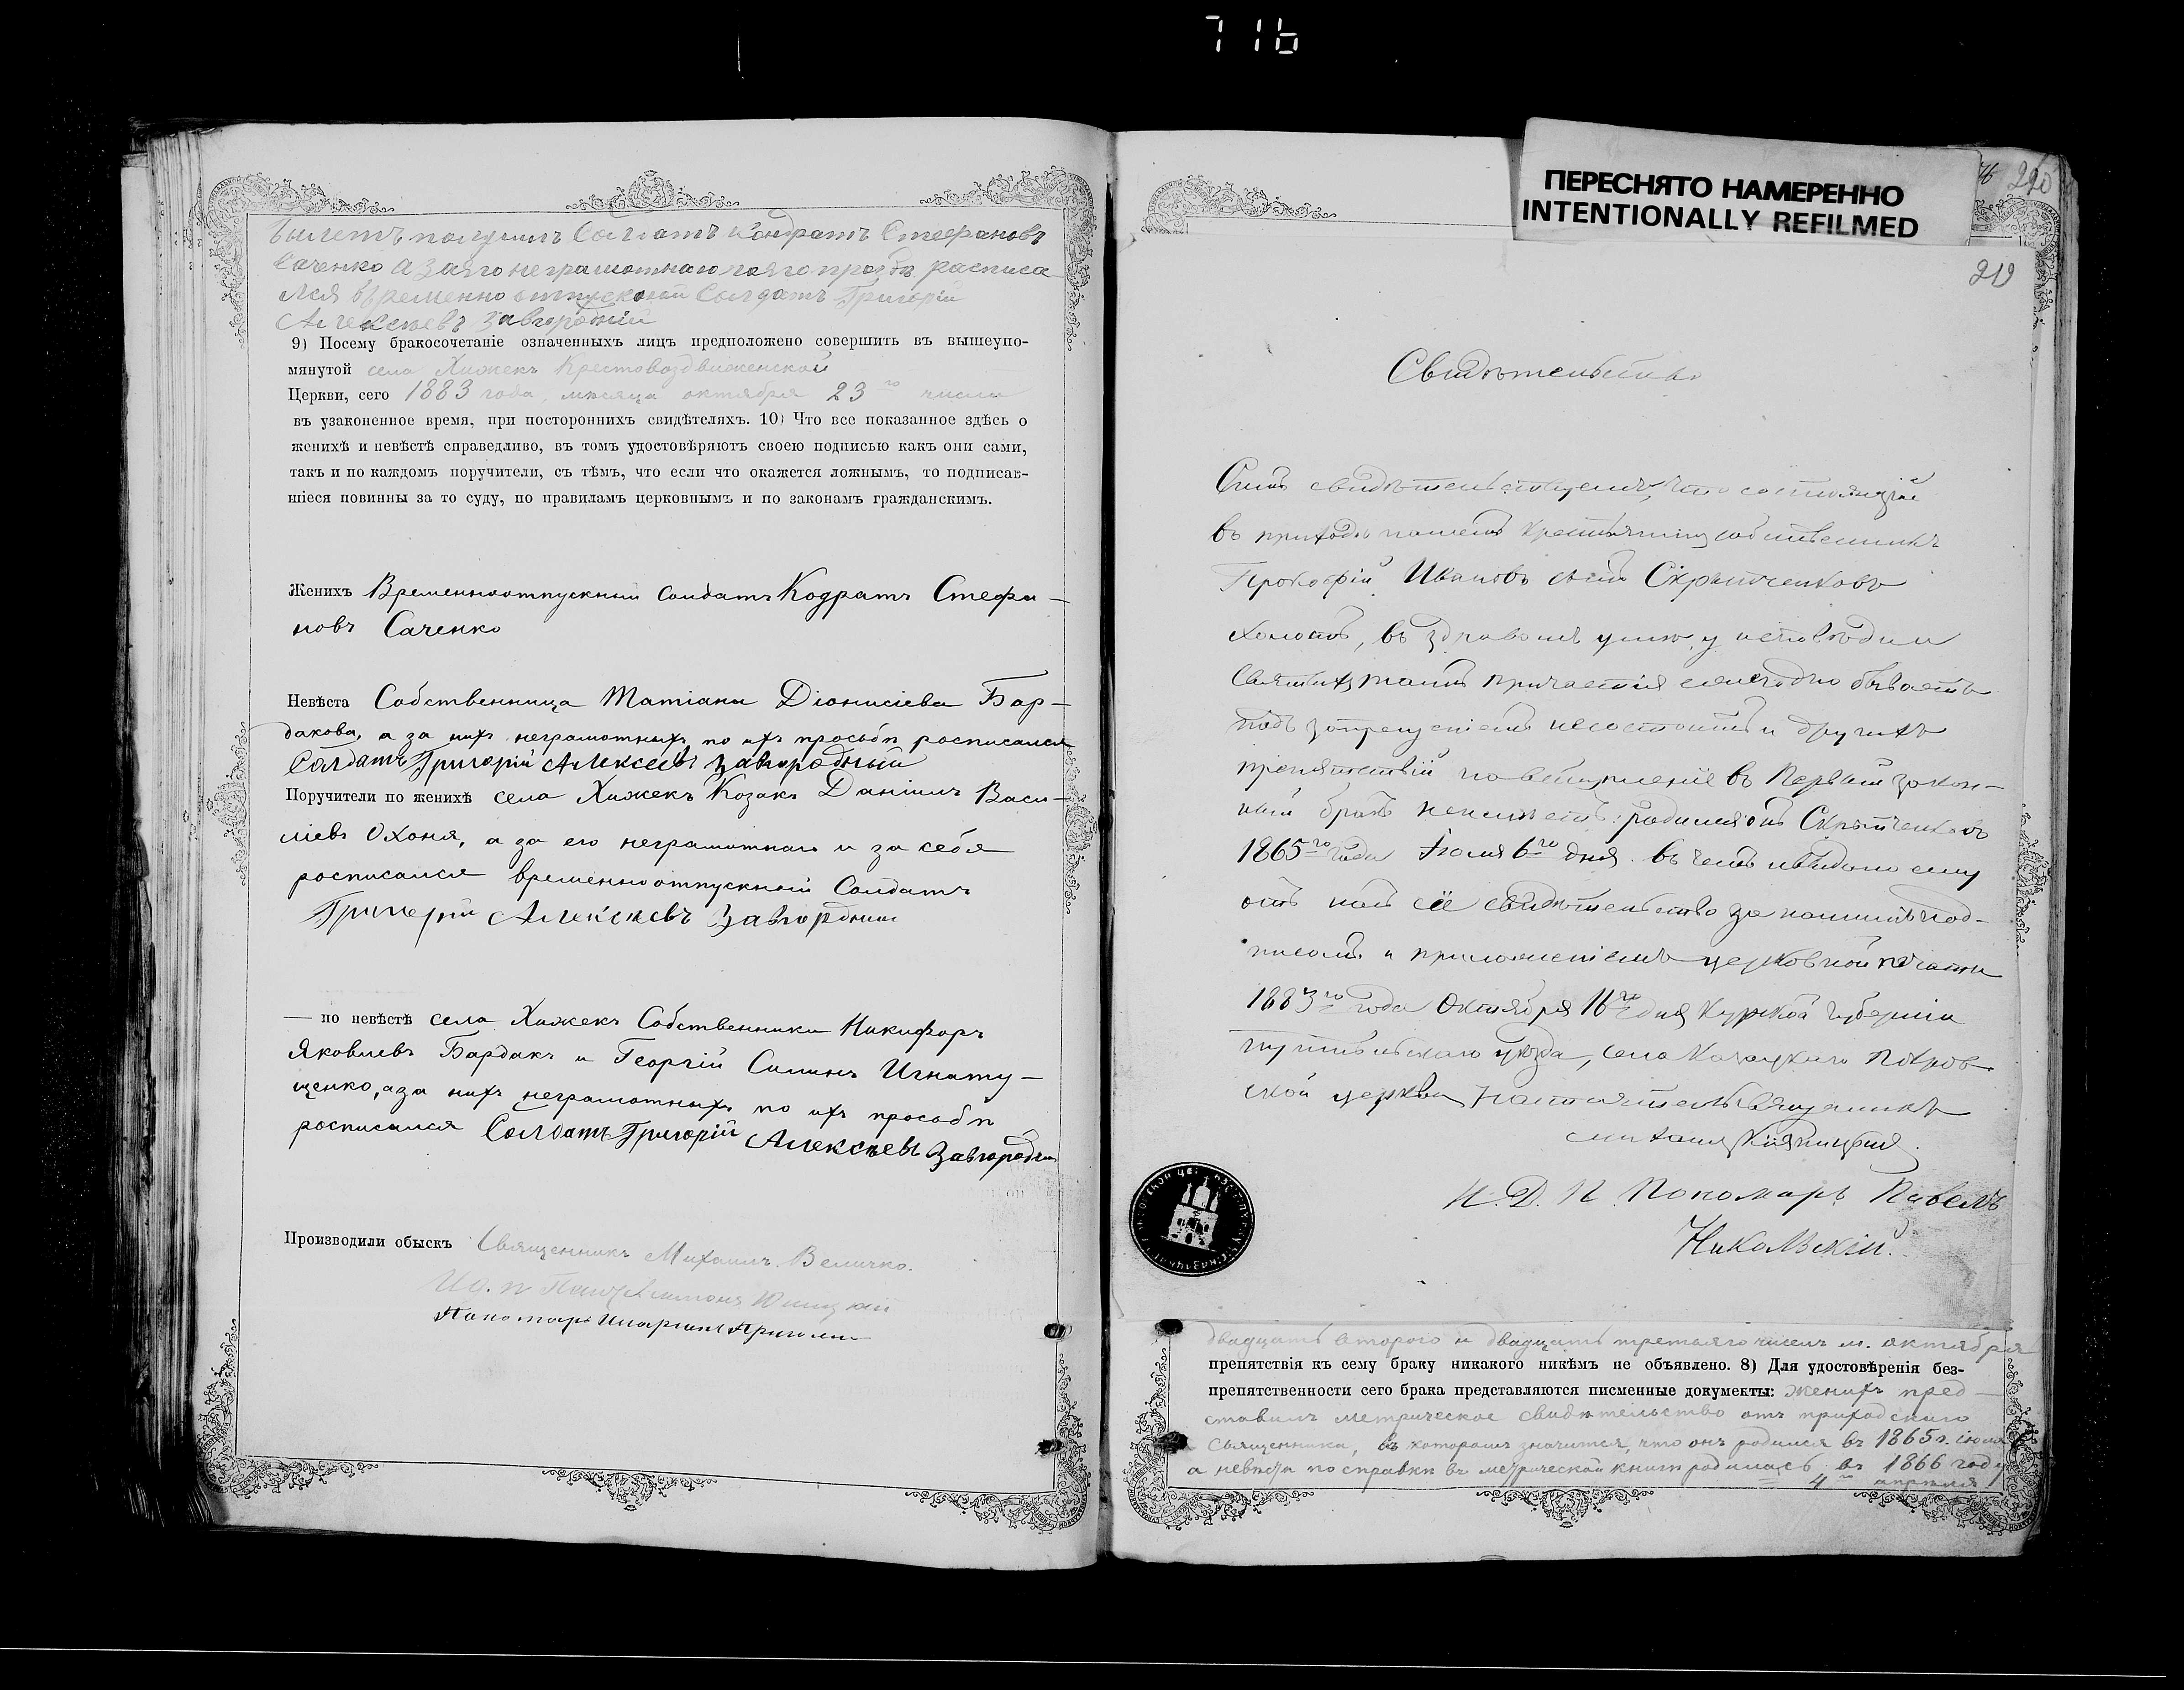 716
ПЕРЕСНЯТО НАМЕРЕННО
INTENTIONALLY REFILMED
билетъ получилъ Солдатъ Кондратъ Стефановъ
Саченко а за его неграмотнаго по его прозбѣ расписа
лся временно отпускной Солдатъ Григорій
Алексѣевъ Завгородній
9) Посему бракосочетаніе означенныхъ лицъ предположено совершить въ вышеупо-
мянутой села Хижекъ Крестовоздвиженской
Церкви, сего 1883 года, мѣсяца октября 23го числа
въ узаконенное время, при постороннихъ свидѣтеляхъ. 10) Что все показанное здѣсь о
женихѣ и невѣстѣ справедливо, въ томъ удостовѣряютъ своею подписью какъ они сами,
такъ и по каждомъ поручители, съ тѣмъ, что если что окажется ложнымъ, то подписав-
шіеся повинны за то суду, по правиламъ церковнымъ и по законамъ гражданскимъ.
Женихъ Временноотпускный Солдатъ Кодратъ Стефа-
новъ Саченко
Невѣста Собственница Татіана Діонисіева Бар-
дакова, а за нихъ неграмотныхъ по ихъ просьбѣ росписался
Солдатъ Григорій Алексеевъ Завгородный
Поручители по женихѣ села Хижекъ Козакъ Даніилъ Васи-
ліевъ Охоня, а за его неграмотнаго и за себя
росписался временноотпускный Солдатъ
Григорій Алексѣевъ Завгордний
— по невѣстѣ села Хижекъ Собственники Никифоръ
Яковлевъ Бардакъ и Георгій Силинъ Игнату-
щенко, а за нихъ неграмотныхъ по ихъ просьбѣ
росписался Солдатъ Григорій Алексѣевъ Завгородни
Производили обыскъ Священникъ Михаилъ Величко.
Пономарь
210
219
Свидѣтельство
Симъ свидѣтельствуемъ, что состоящій
въ приходѣ нашемъ крестьянинъ собственникъ
Прокофій Ивановъ сынъ Скрыпченковъ
холостъ, въ здравомъ умѣ, у исповѣди и
Святыхъ таинъ причастія ежегодно бываетъ
подъ запрещеніемъ несостоитъ и другихъ
препятствій на вступленіе въ Первый закон-
ный бракъ неимѣетъ: родился онъ Скрыпченковъ
1865го года Іюля 6го дня. въ чемъ и выдано ему
отъ насъ сіе свидѣтельство за нашимъ под-
писомъ и приложеніемъ церковной печати
1883го года Октября 16го дня Курской губерніи
Путивльскаго уѣзда, села Казацкаго Покров-
ской церкви Настоятель Священникъ
Михаилъ
И. Д. П. Пономарь Павелъ
Никольскій.
двадцать второго и двадцать третьяго числъ м. октября
препятствія къ сему браку никакого никѣмъ не объявлено. 8) Для удостовѣренія без-
препятственности сего брака представляются писменные документы: женихъ пред-
ставилъ метрическое свидѣтельство отъ приходскаго
священника, въ которомъ значится, что онъ родился въ 1865 г. іюля
а невѣста по справки въ метрической книгѣ родилась въ 1866 году
4го апрѣля